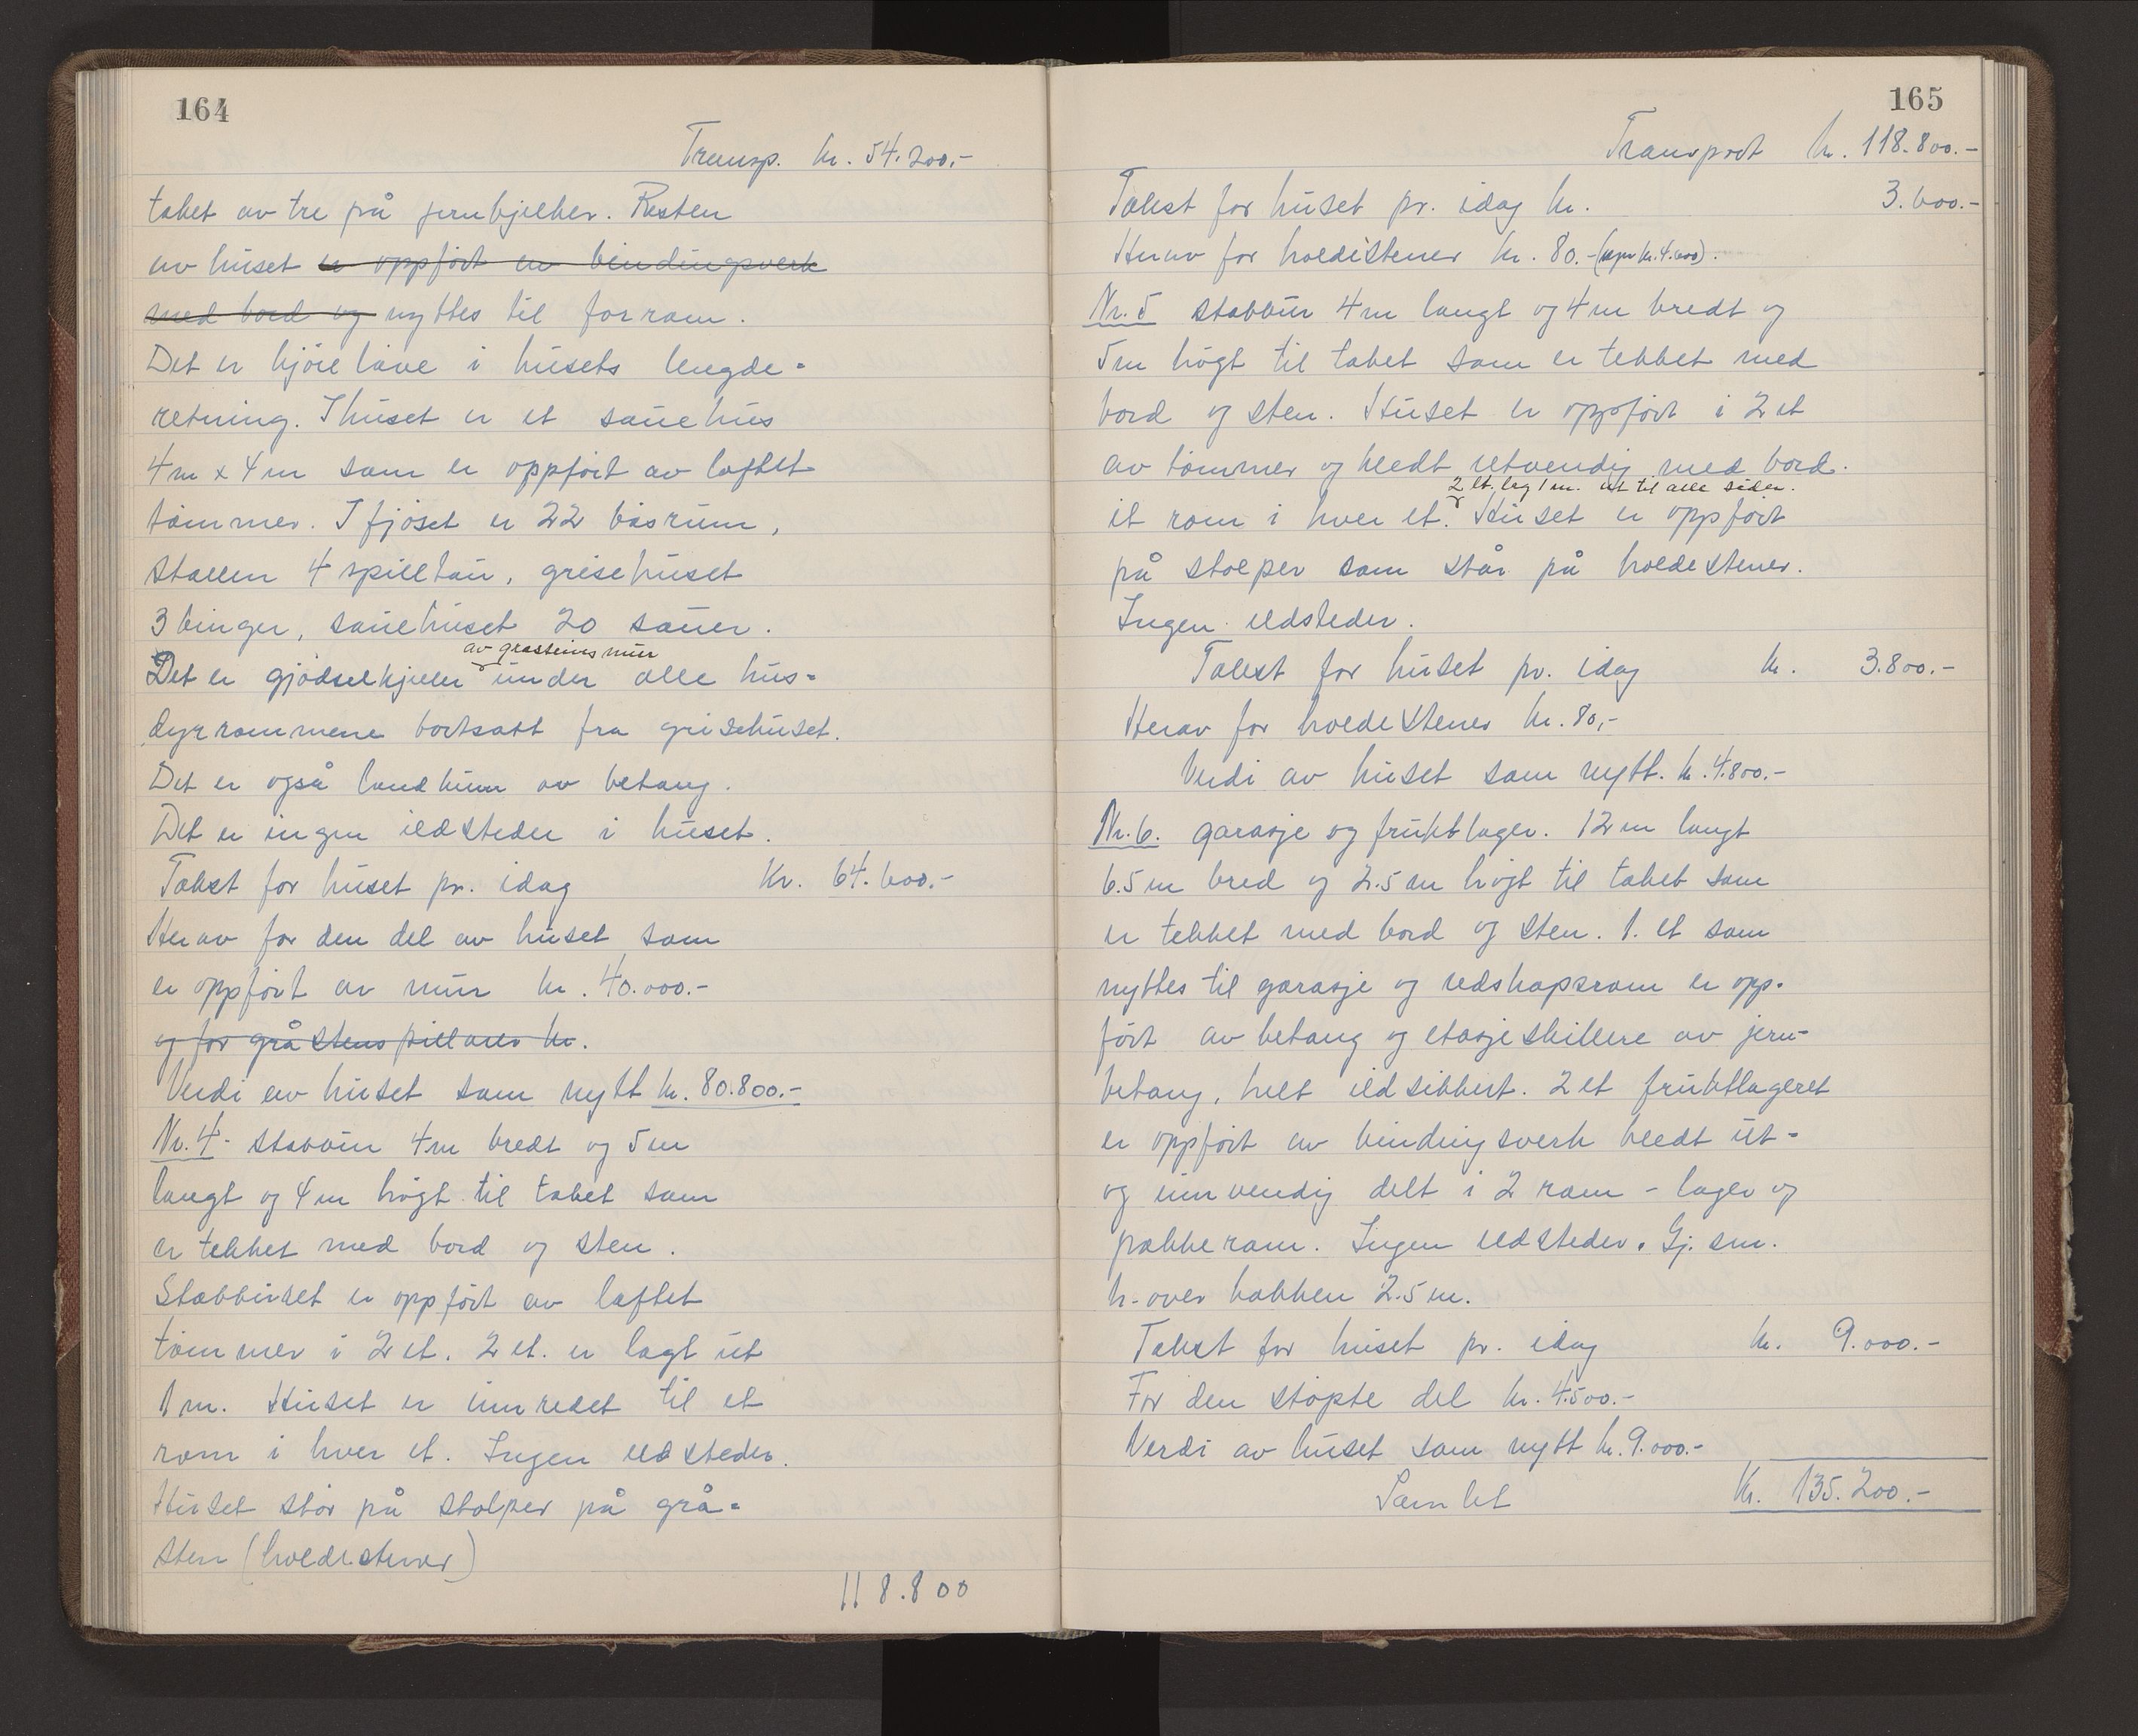 164
Transp. kr. 54.200.-
taket av tre på jernbjelker. Resten
av huset er oppført av bindingsverk
med bord og nyttes til forrom.
Det er kjøielåve i husets lengde-
retning. I huset er et sauehus
4 m x 4 m som er oppført av laftet
tømmer. I fjøset er 22 båsrum,
stallen 4 spilltau, grisehuset
3 binger, sauehuset 20 sauer.
av gråsteins mur
Det er gjødselkjeller under alle hus-
dyrrommene bortsatt fra grisehuset.
Det er også landkum av betong.
Det er ingen ildsteder i huset.
Takst for huset pr. idag Kr. 64.600.-
Herav for den del av huset som
er oppført av mur kr. 40.000.-
og for gråstens pillarer kr.
Verdi av huset som nytt kr. 80.800.-
Nr. 4- stabbur 4 m bredt og 5 m
langt og 4 m høgt til taket som
er tekket med bord og sten.
Stabburet er oppført av laftet
tømmer i 2 et. 2 et. er lagt ut
1 m. Huset er innredet til et
rom i hver et. Ingen ildsteder.
Huset står på stolper på grå-
sten (holdestener)
118.800
165
Transport kr. 118.800.-
Takst for huset pr. idag kr. 3.600.-
Herav for holdistener kr. 80.- ( kr. 4.600).
Nr. 5 stabbur 4 m langt og 4 m bredt og
5 m høgt til taket som er tekket med
bord og sten. Huset er oppført i 2 et
av tømmer og kledt utvendig med bord.
2 et. lag 1 m. ut til alle sider.
et rom i hver et. Huset er oppført
på stolper som står på holdestener.
Ingen ildsteder.
Takst for huset pr. idag kr. 3.800.-
Herav for holdestener kr. 80,-
Verdi av huset som nytt. kr. 4.800.-
Nr. 6. garasje og fruktlager. 12 m langt
6.5 m bred og 2.5 m høgt til taket som
er tekket med bord og sten. 1. et som
nyttes til garasje og redskapsrom er opp-
ført av betong og etasjeskillere av jern-
betong, helt ildsikkert. 2 et fruktlageret
er oppført av bindingsverk kledt ut-
og innvendig delt i 2 rom - lager og
pakkerom. Ingen ildsteder. Gj. sm.
h. over bakken 2.5 m.
Takst for huset pr. idag kr. 9.000.-
For den støpte del kr. 4.500.-
Verdi av huset som nytt kr. 9.000.-
Samlet Kr. 135.200.-